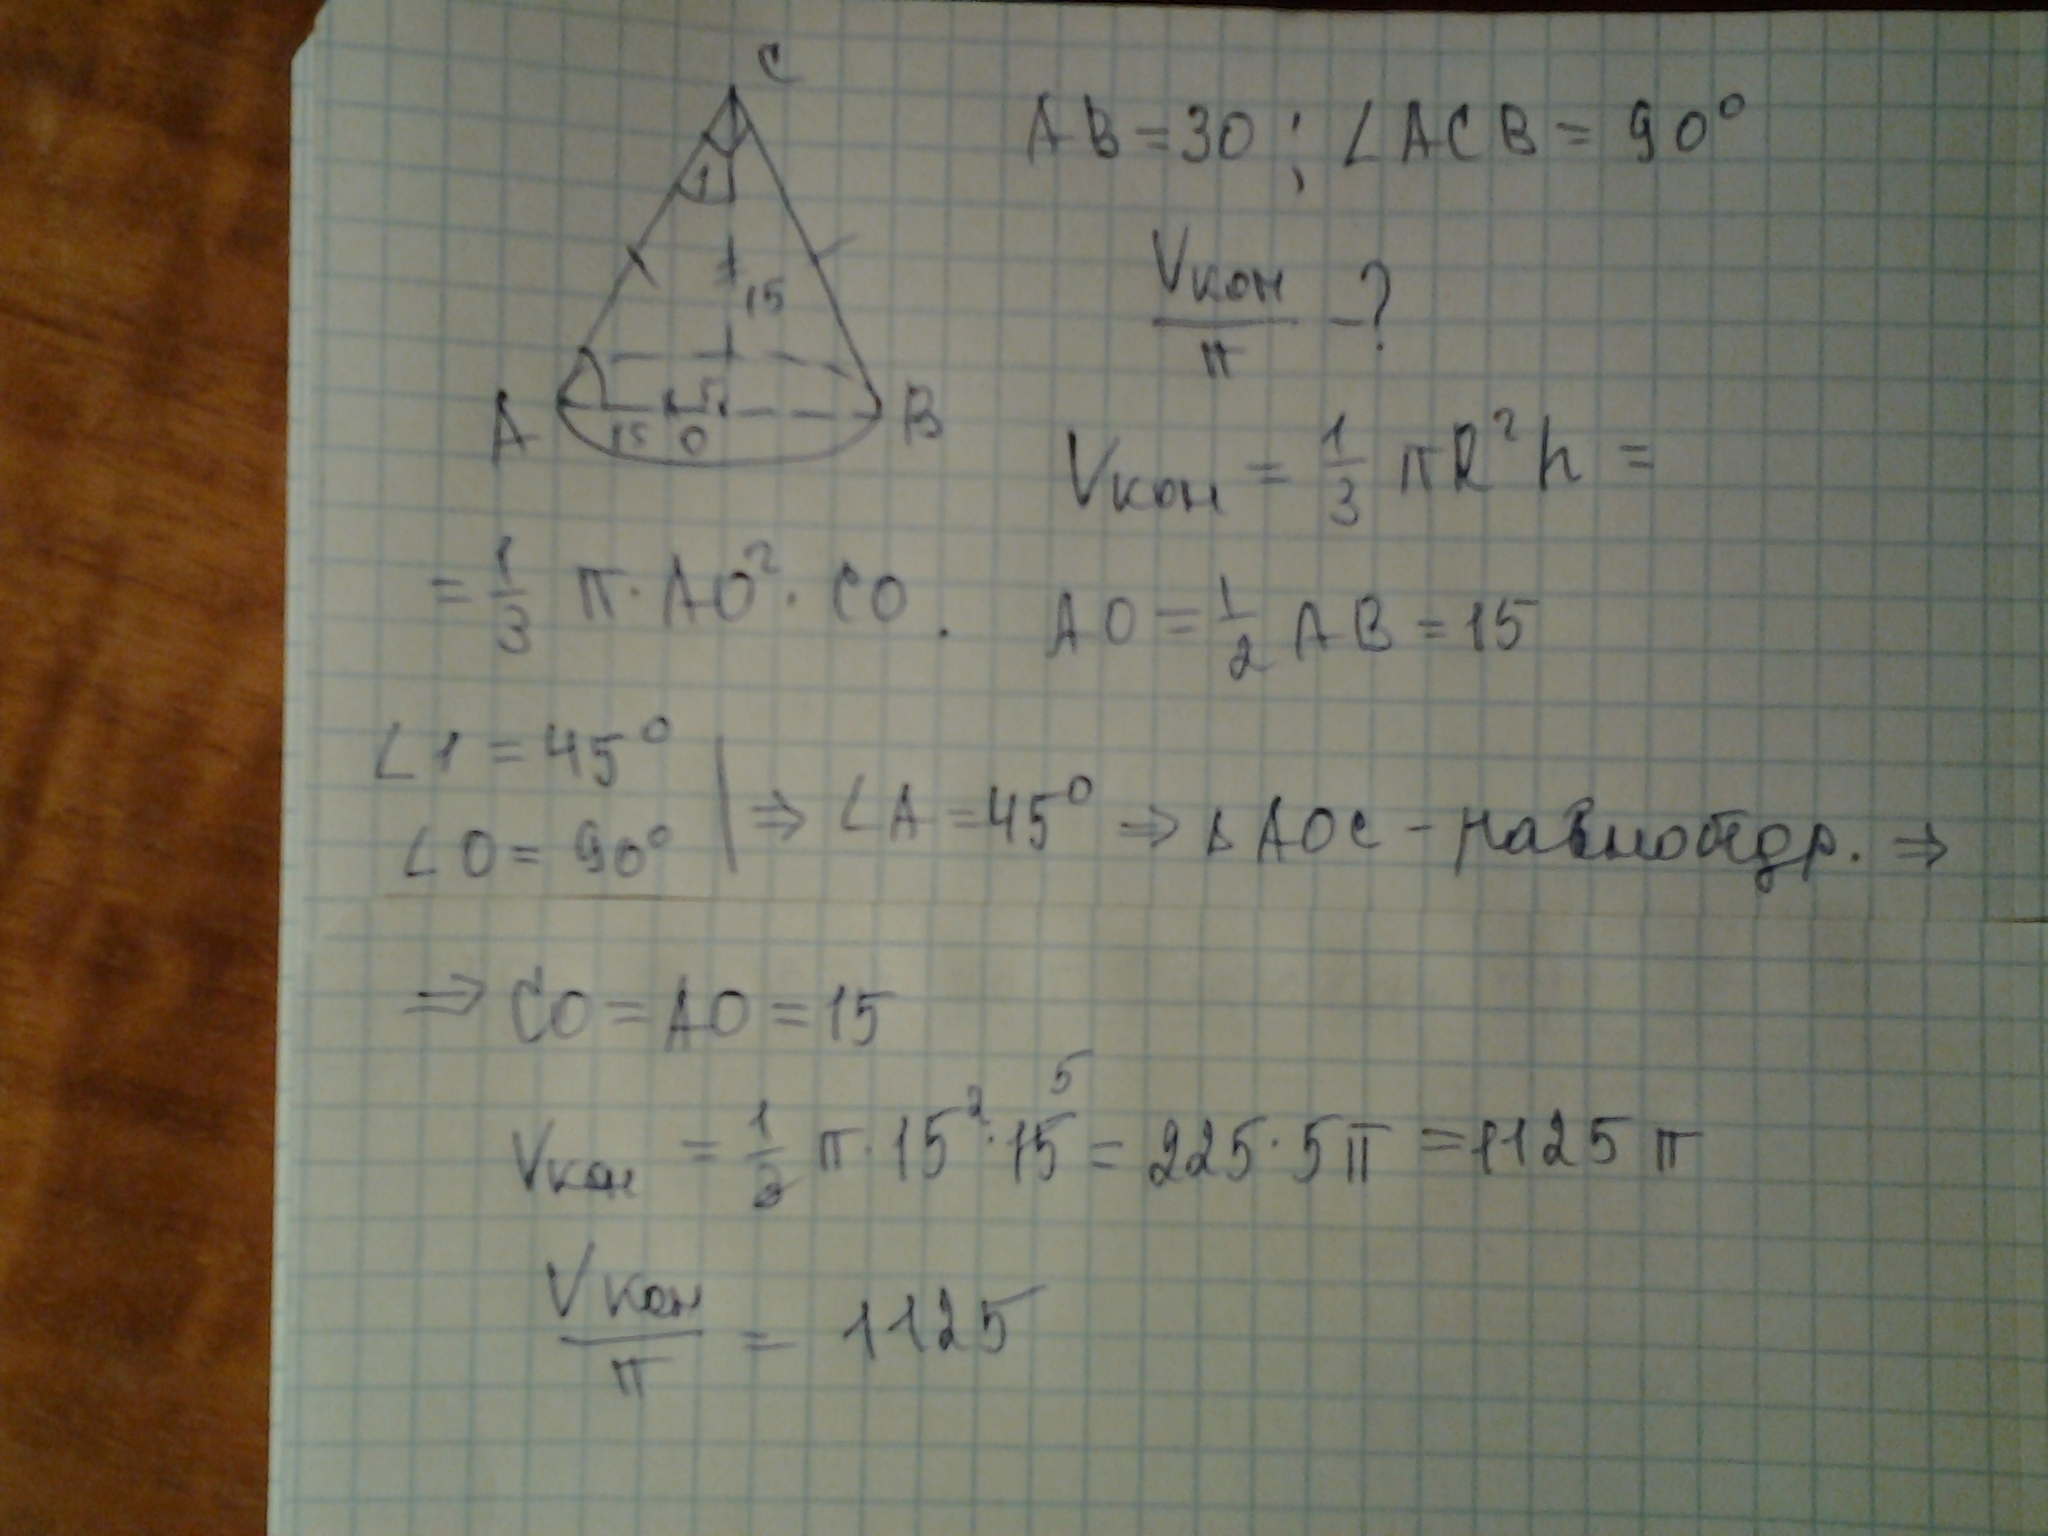 C
1
15
A 15 O B
AB = 30 ; ∠ACB = 90°
Vкон/π - ?
Vкон = 1/3 πR²h =
= 1/3 π · AO² · CO. AO = 1/2 AB = 15
∠1 = 45°
∠O = 90° | ⇒ ∠A = 45° ⇒ ΔAOC - равнобедр. ⇒
⇒ CO = AO = 15
5
Vкон = 1/3 π · 15² · 15 = 225 · 5π = 1125 π
Vкон/π = 1125